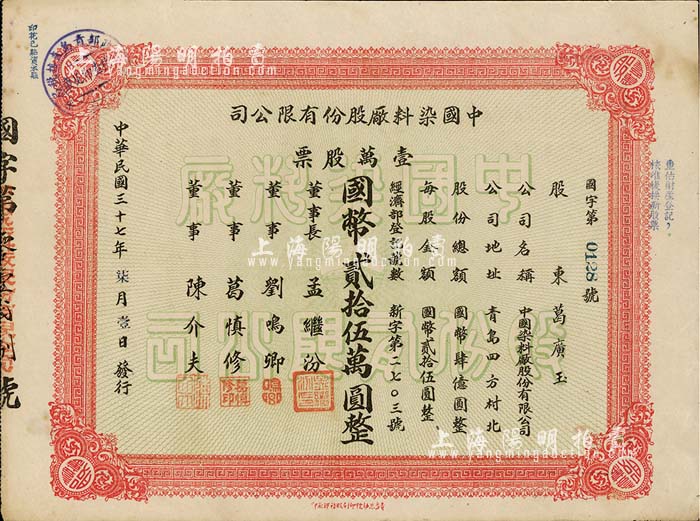 中國染料廠股份有限公司
壹萬股票
國字第 0128 號
股東 葛廣玉
公司名稱 中國染料廠股份有限公司
公司地址 青島四方村北
股份總額 國幣肆億圓整
每股金額 國幣貳拾伍圓整
經濟部登記號數 新字第二七〇三號
國幣貳拾伍萬圓整
董事長 孟繼汾
董事 劉鳴卿
董事 葛慎修
董事 陳介夫
中華民國三十七年 柒月壹日發行
中國染料廠
股份有限公司
上海陽明拍賣
yangmingauction.com
上海陽明拍賣
yangmingauction.com
上海陽明拍賣
yangmingauction.com